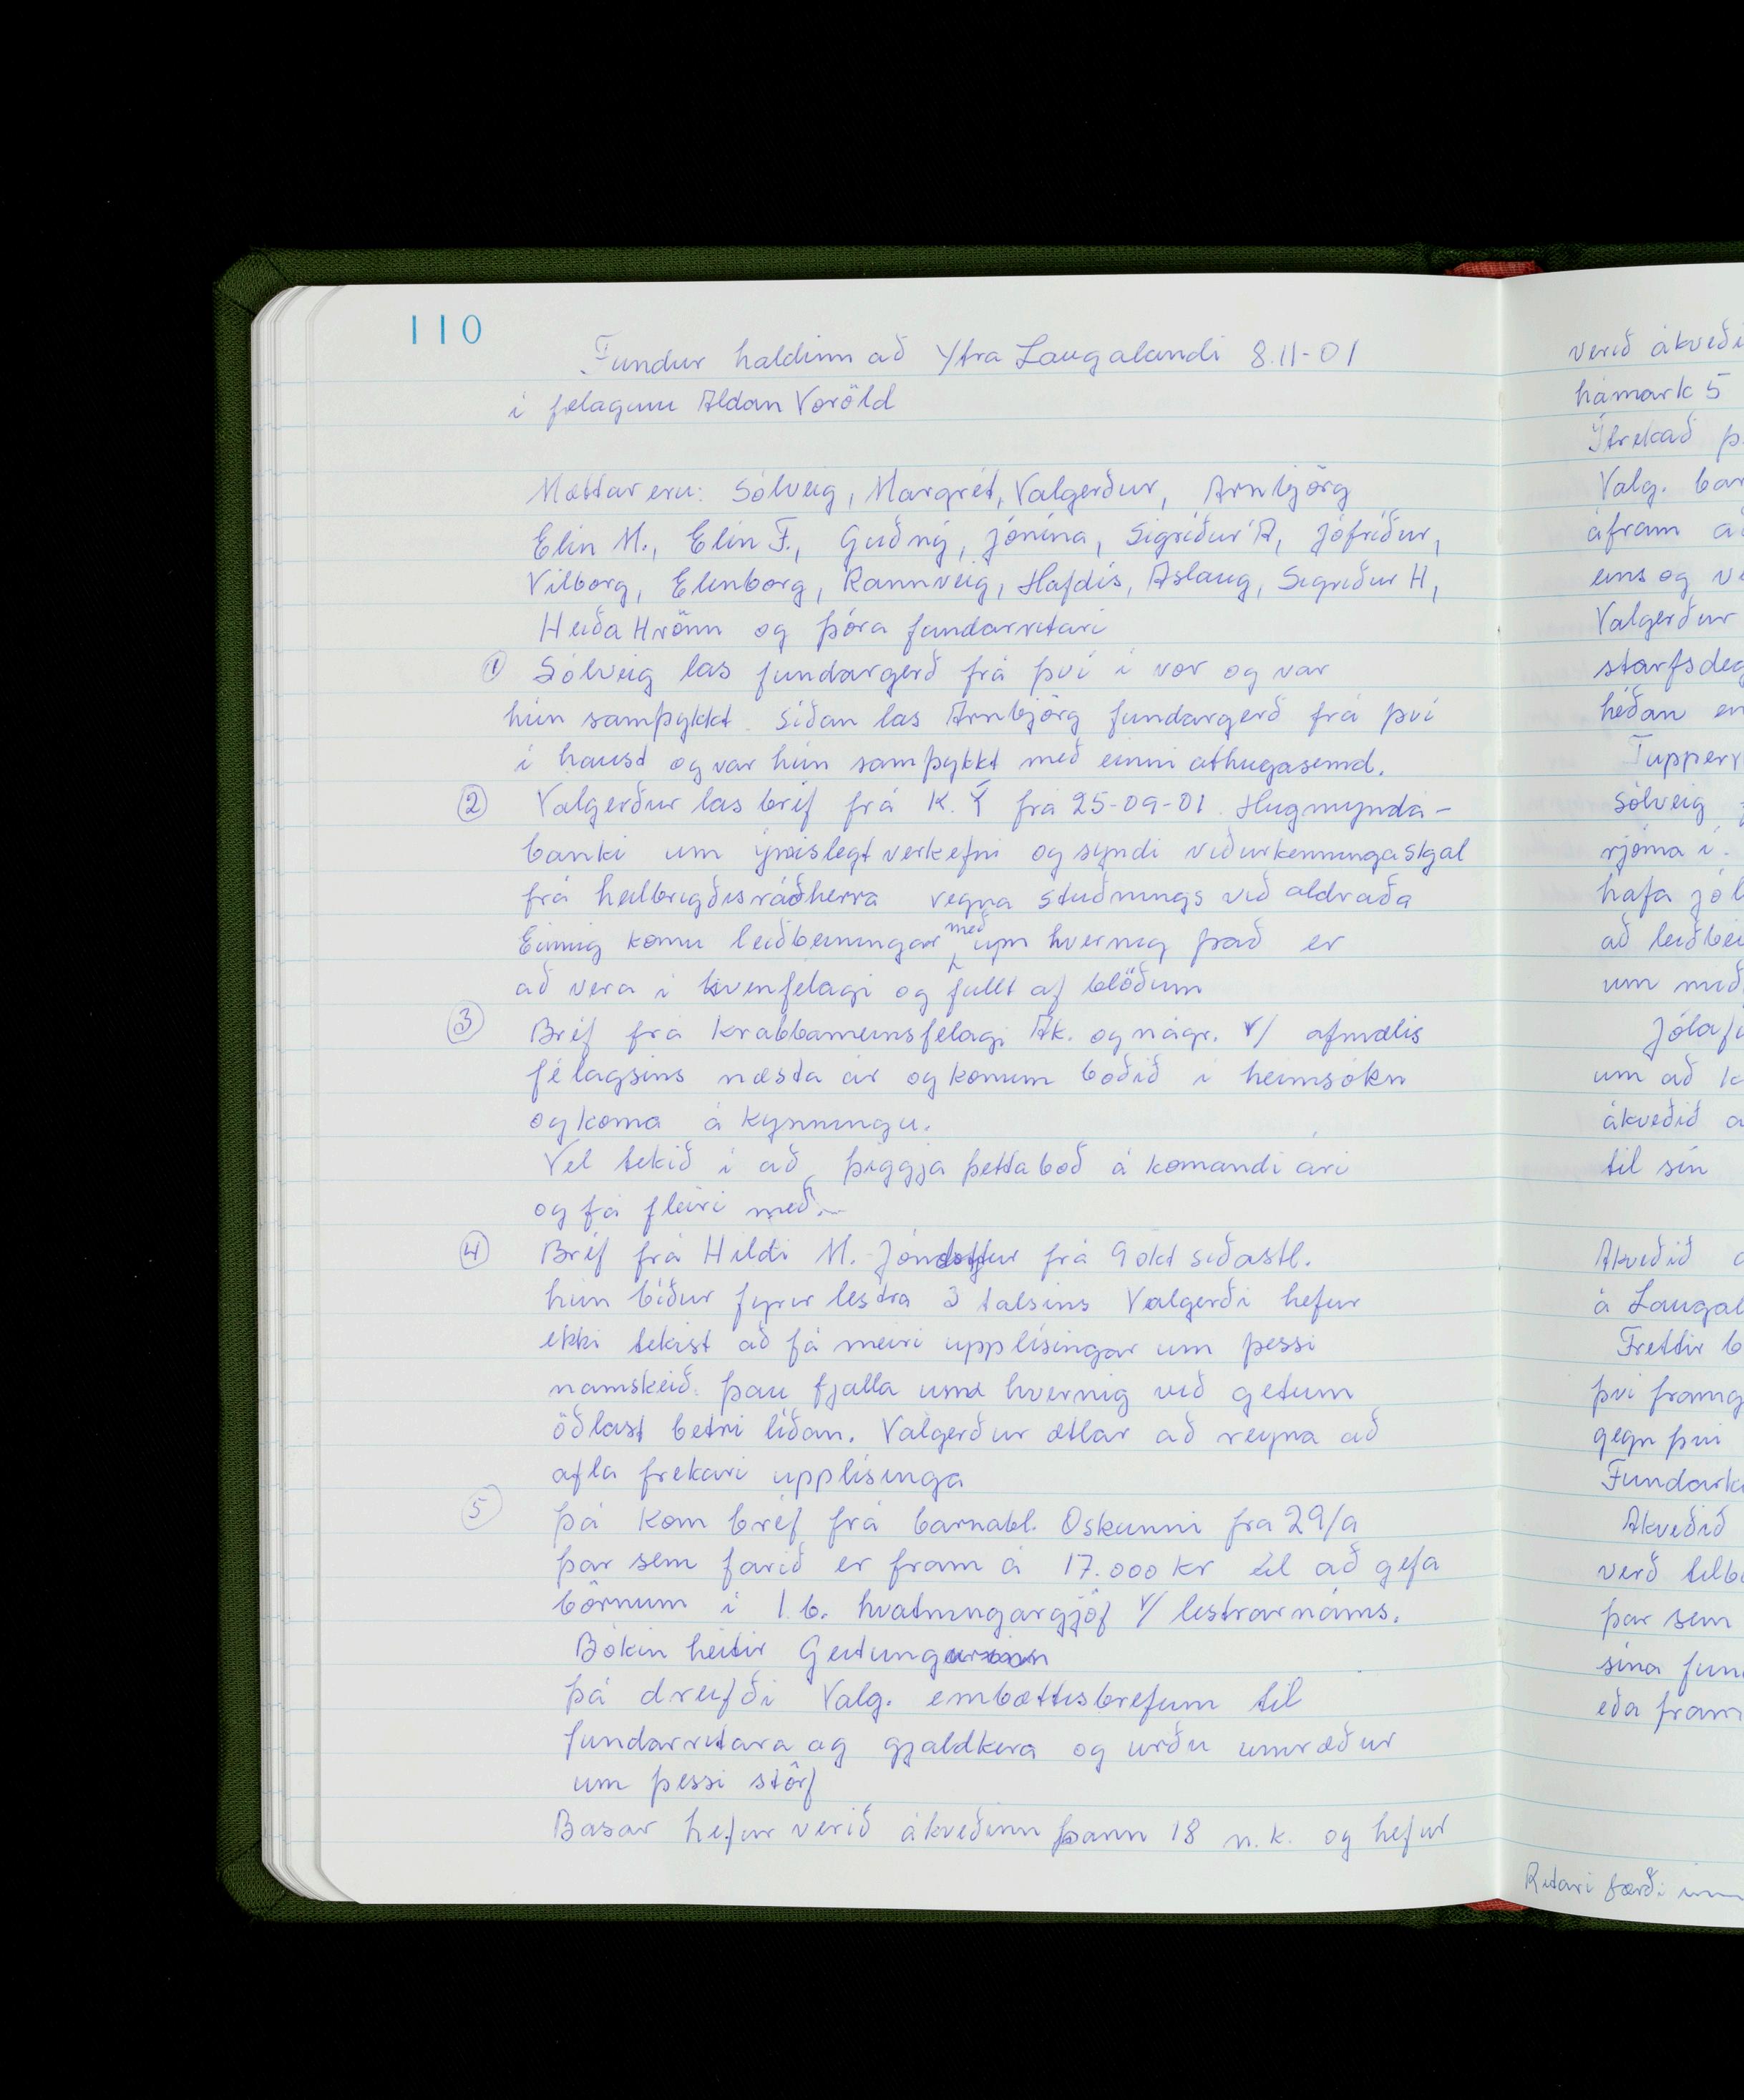 110
Fundur haldinn að Ytra Laugalandi 8.11-01
í félaginu Aldan Voröld
Mættar eru: Sólveig, Margrét, Valgerður, Arnbjörg
Elín M., Elín F., Guðný, Jónína, Sigríður Á, Jófríður,
Vilborg, Elinborg, Rannveig, Hafdís, Áslaug, Sigríður H,
Heiða Hrönn og Þóra fundarritari
① Sólveig las fundargerð frá því í vor og var
hún samþykkt. Síðan las Arnbjörg fundargerð frá því
í haust og var hún samþykkt með einni athugasemd.
② Valgerður las bréf frá K.Í frá 25-09-01. Hugmynda-
banki um ýmislegt verkefni og sýndi viðurkenningaskjal
frá heilbrigðisráðherra vegna stuðnings við aldraða
Einnig komu leiðbeiningar með um hvernig það er
að vera í kvenfélagi og fullt af blöðum
③ Bréf frá Krabbameinsfélagi Ak. og nágr. v/ afmælis
félagsins næsta ár og konum boðið í heimsókn
og koma á kynningu.
Vel tekið í að þiggja þetta boð á komandi ári
og fá fleiri með.
④ Bréf frá Hildi M. Jónsdóttur frá 9 okt síðastl.
hún bíður fyrir lestra 3 talsins Valgerði hefur
ekki tekist að fá meiri upplísingar um þessi
namskeið. þau fjalla um hvernig við getum
öðlast betri líðan. Valgerður ætlar að reyna að
afla frekari upplísinga
⑤ Þá kom bréf frá barnabl. Oskunni fra 29/9
þar sem farið er fram á 17.000 kr til að gefa
börnum í 1.b. hvatningargjöf v/ lestrarnáms.
Bókin heitir
Þá dreifði Valg. embættisbrefum til
fundarritara og gjaldkera og urðu umræður
um þessi störf
Basar hefur verið ákveðinn þann 18 n.k. og hefur
verið ákveði
hámark 5
Ítrekað
Valg. bar
áfram
eins og
Valgerður
starfsdeg
héðan
Tupper
Sólveig
rjóma í.
hafa jól
að leiðbei
um með
Jólaf
um að
ákveðið
til sín
Ákveðið
á Laugal
Frettir
því framg
gegn því
Fundark
Akveðið
verð tilb
þar sem
sína fun
eða fram
Ritari færði inn